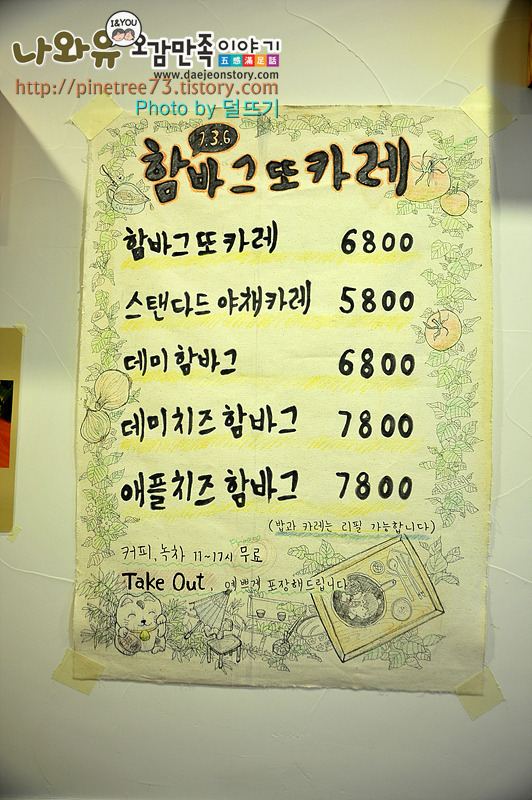 I&YOU
나와유 오감만족이야기
五感滿足話
www.daejeonstory.com
http://pinetree73.tistory.com
Photo by 덜뜨기
7.3.6
함바그또카레
함바그또카레 6800
스탠다드야채카레 5800
데미함바그 6800
데미치즈함바그 7800
애플치즈함바그 7800
(밥과 카레는 리필 가능합니다)
커피, 녹차 11~17시 무료
Take Out, 예쁘게 포장해드립니다